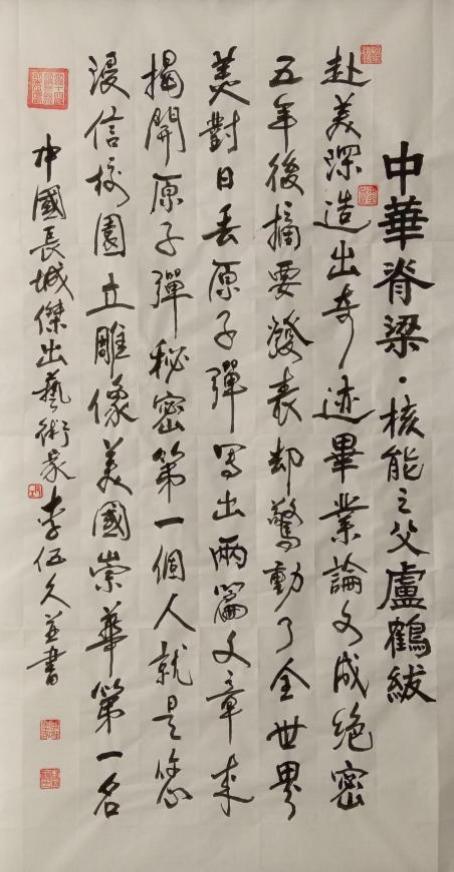 中華脊梁·核能之父盧鶴紱
赴美深造出奇迹畢業論文成絕密
五年後摘要發表却驚動了全世界
美對日丟原子彈寫出兩篇文章來
揭開原子彈秘密第一個人就是您
漫信校園立雕像美國崇華第一名
中國長城傑出藝術家李伍久並書